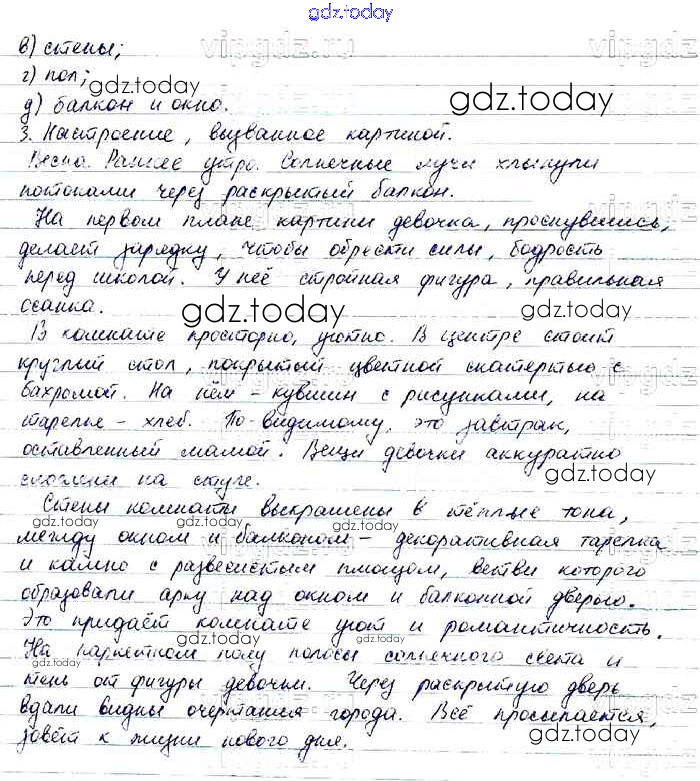 gdz.today
в) стены;
г) пол;
д) балкон и окно.
3. Настроение, вызванное картиной.
Весна. Раннее утро. Солнечные лучи хлынули
потоками через раскрытый балкон.
На первом плане картины девочка, проснувшись,
делает зарядку, чтобы обрести силы, бодрость
перед школой. У неё стройная фигура, правильная
осанка.
В комнате просторно, уютно. В центре стоит
круглый стол, покрытый цветной скатертью с
бахромой. На нём – кувшин с рисунками, на
тарелке – хлеб. По-видимому, это завтрак,
оставленный мамой. Вещи девочки аккуратно
сложены на стуле.
Стены комнаты выкрашены в тёплые тона,
между окном и балконом – декоративная тарелка
и кашпо с развесистым плющом, ветви которого
образовали арку над окном и балконной дверью.
Это придаёт комнате уют и романтичность.
На паркетном полу полосы солнечного света и
тень от фигуры девочки. Через раскрытую дверь
вдали видны очертания города. Всё просыпается,
зовёт к жизни нового дня.
vipgdz.ru
gdz.today